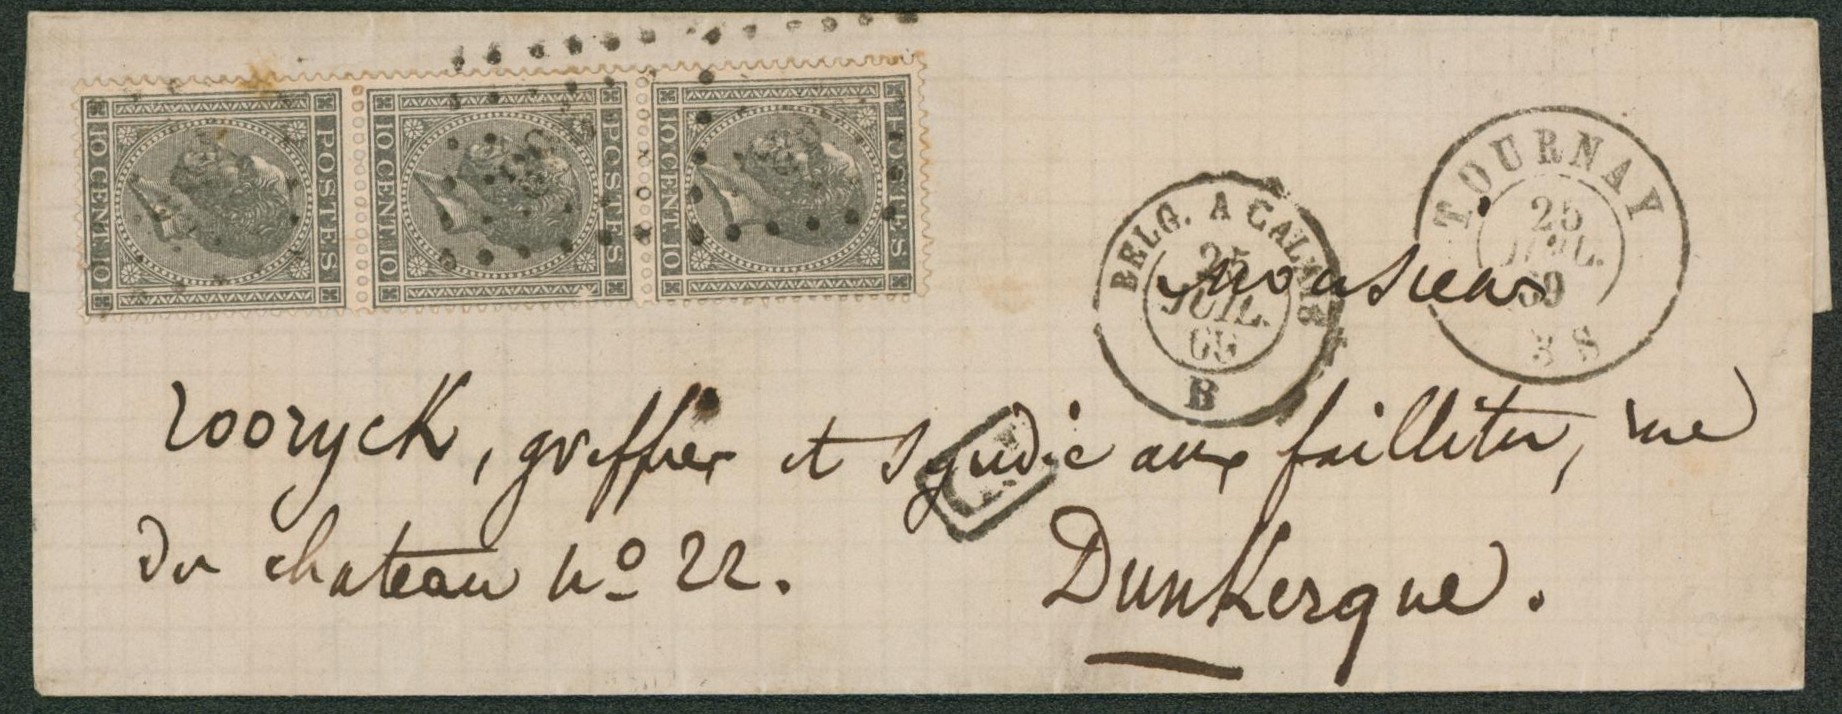 POSTES
10 CENT 10
POSTES
10 CENT 10
POSTES
10 CENT 10
BELG. A CALAIS
25
JUIL.
69
B
TOURNAY
25
JUIL.
69
3 S
Monsieur
rooryck, greffier et syndic aux faillites, rue
du chateau No 22.
Dunkerque.